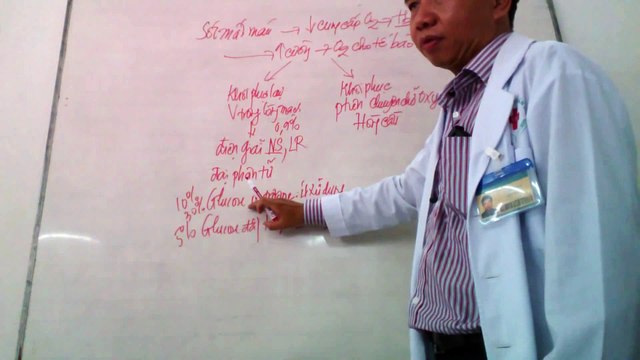 Sốc mất máu → ↓ cung cấp O2 →
→ ↑ cường → O2 cho tế bào
Khôi phục lại
V trong lòng mạch
0,9%
điện giải NS, LR
đại phân tử
Khôi phục
phân chuyên chở Oxy
Hồng cầu
10%
30% Glucose ít sử dụng
5% Glucose đẳng